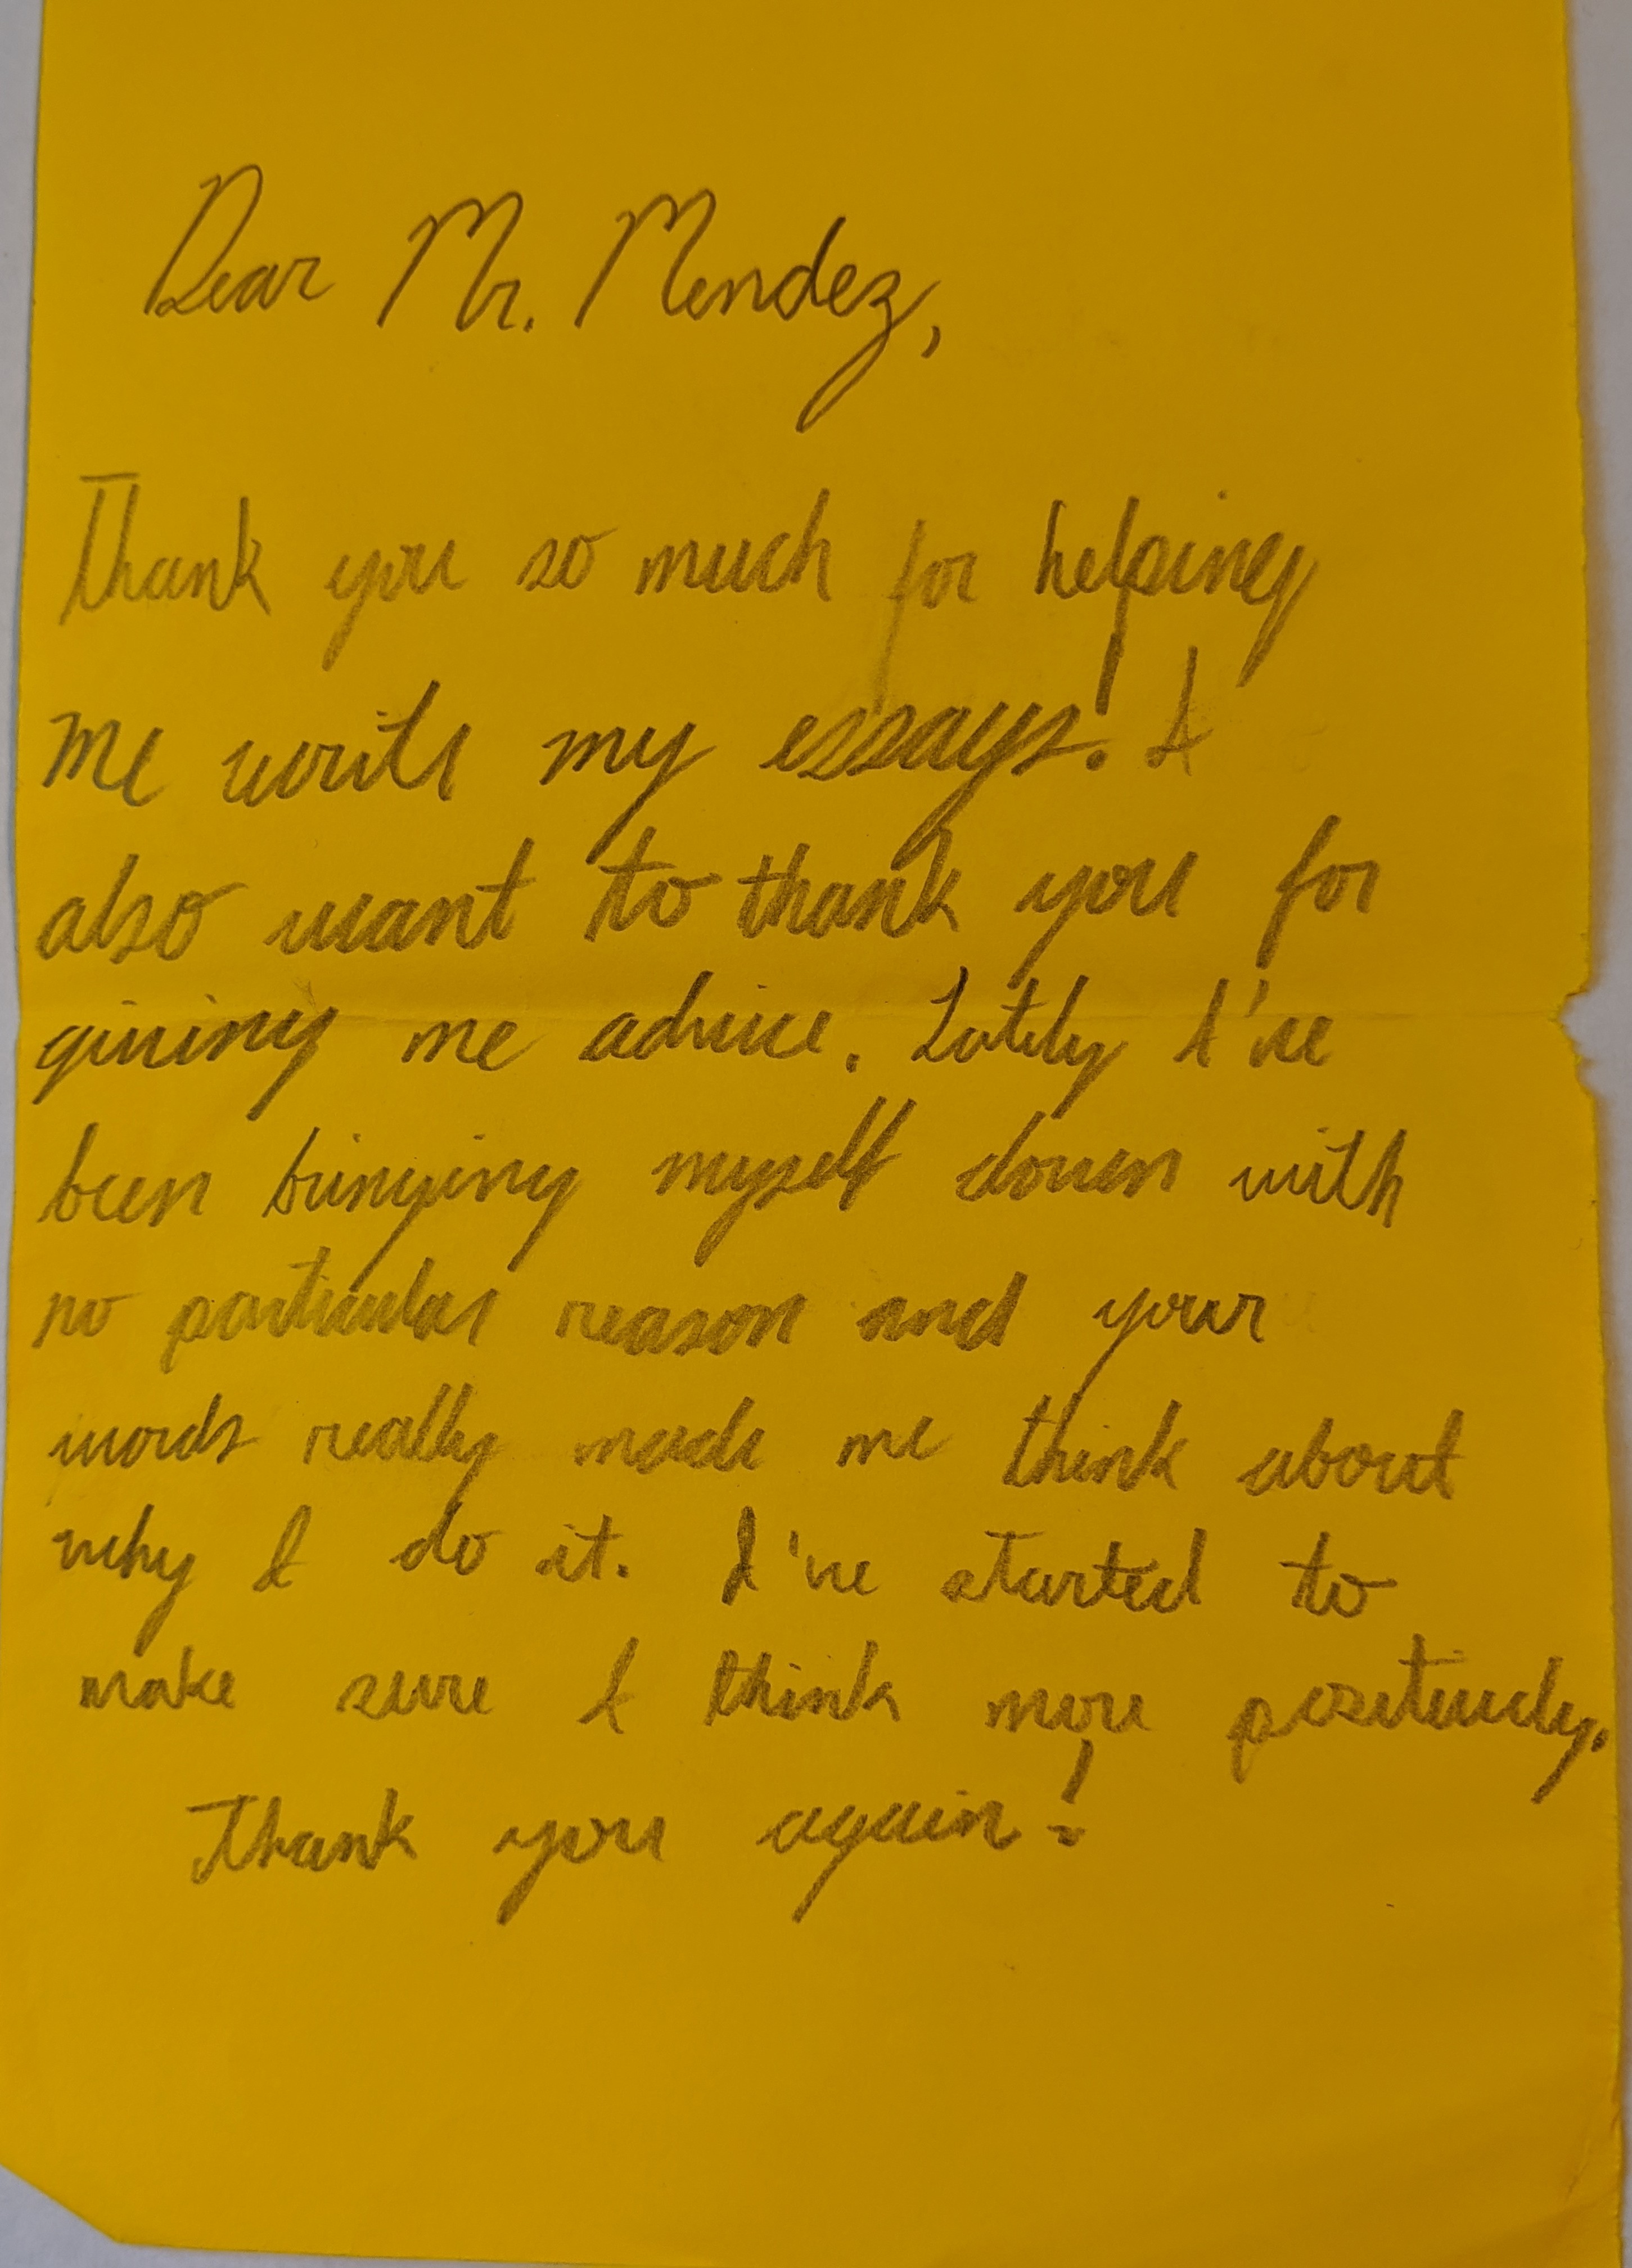 Dear Mr. Mendez,
Thank you so much for helping
me write my essays! I
also want to thank you for
giving me advice. Lately I've
been bringing myself down with
no particular reason and your
words really made me think about
why I do it. I've started to
make sure I think more positively.
Thank you again!